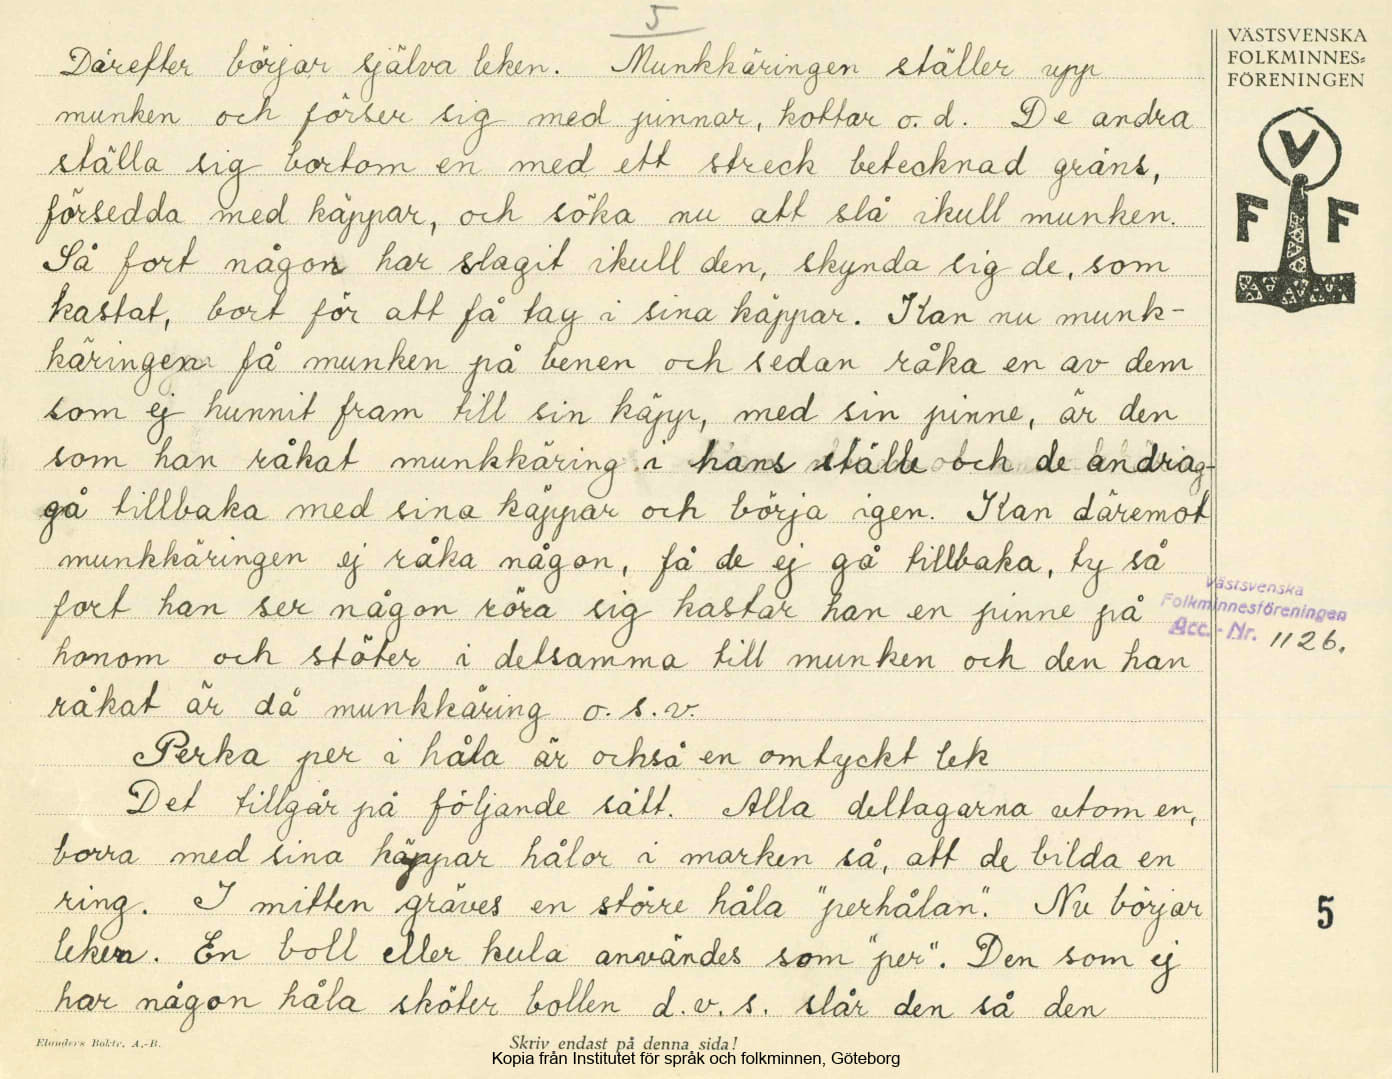 5
Därefter börjar själva leken. Munkkäringen ställer upp
munken och förser sig med pinnar, kottar o. d. De andra
ställa sig bortom en med ett streck betecknad gräns,
försedda med käppar, och söka nu att slå ikull munken.
Så fort någon har slagit ikull den, skynda sig de, som
kastat, bort för att få tag i sina käppar. Kan nu munk-
käringen få munken på benen och sedan råka en av dem
som ej hunnit fram till sin käpp, med sin pinne, är den
som han råkat munkkäring i hans ställe och de andra
gå tillbaka med sina käppar och börja igen. Kan däremot
munkkäringen ej råka någon, få de ej gå tillbaka, ty så
fort han ser någon röra sig kastar han en pinne på
honom och stöter i detsamma till munken och den han
råkat är då munkkäring o. s. v.
Perka per i håla är också en omtyckt lek
Det tillgår på följande sätt. Alla deltagarna utom en,
borra med sina käppar hålor i marken så, att de bilda en
ring. I mitten gräves en större håla "perhålan". Nu börjar
leken. En boll eller kula användes som "per". Den som ej
har någon håla sköter bollen d. v. s. slår den så den
VÄSTSVENSKA
FOLKMINNES-
FÖRENINGEN
V
F F
Västsvenska
Folkminnesföreningen
Acc.-Nr. 1126.
5
Elanders Boktr. A.-B.
Skriv endast på denna sida!
Kopia från Institutet för språk och folkminnen, Göteborg